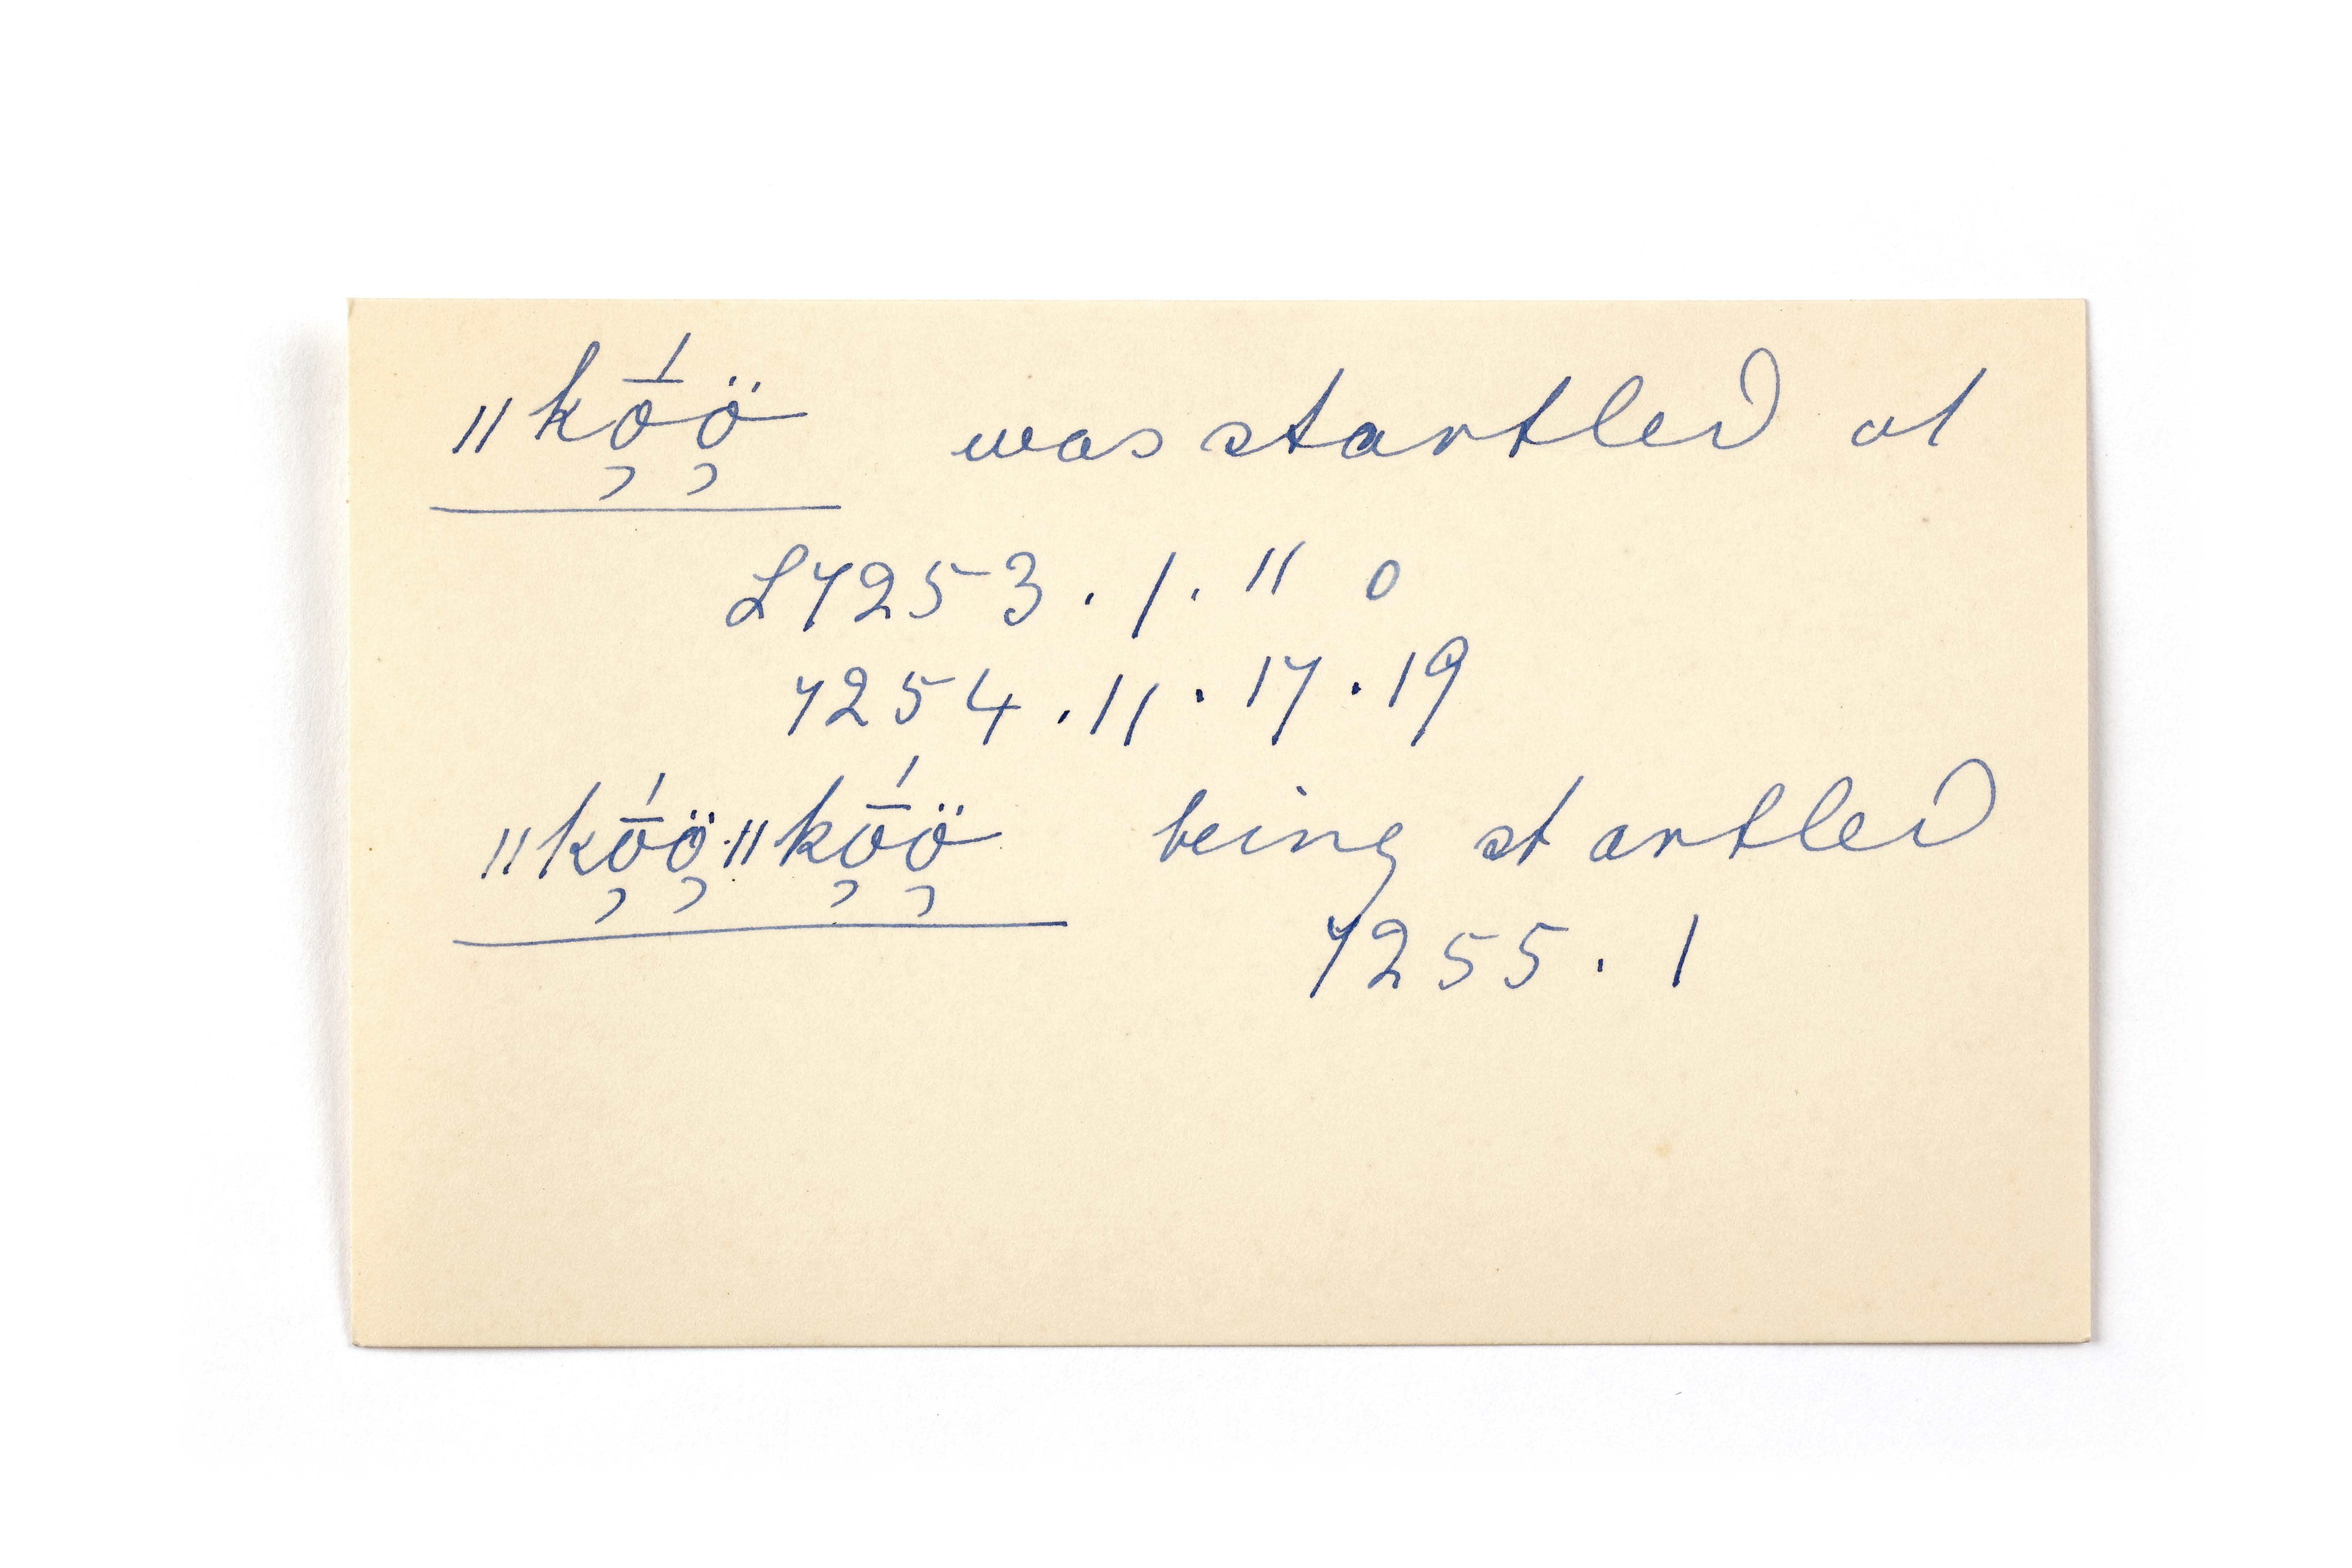 ǁkǭ́ǫ̈ was startled at
L7253.1. 11 0
7254.11.17.19
ǁkǭ́ǫ̈.ǁkǭ́ǫ̈ being startled
7255.1